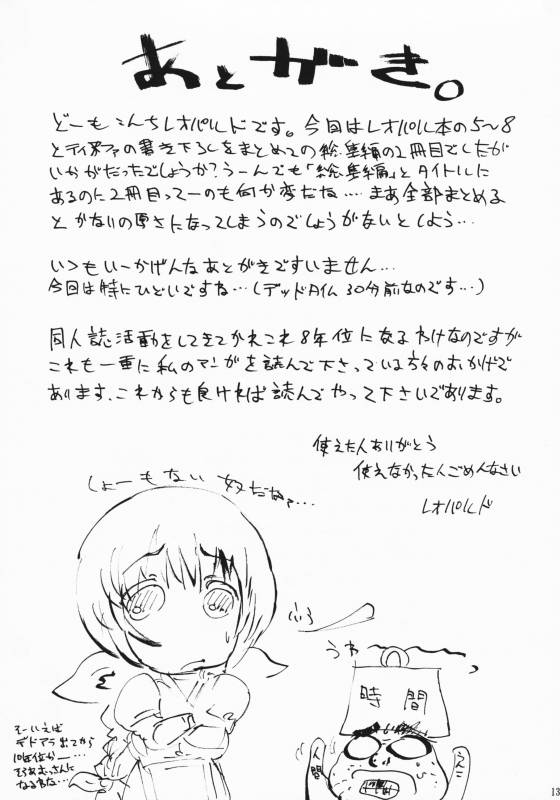 あとがき。
どーもこんちレオパルドです。今回はレオパル本の5〜8
とティファの書き下ろしをまとめての総集編の2冊目でしたが
いかがだったでしょうか?うーんでも「総集編」とタイトルに
あるのに2冊目ってーのも何か変だな‥‥まあ全部まとめる
とかなりの厚さになってしまうのでしょうがないとしよう…
いつもいーかげんなあとがきですいません…
今回は特にひどいですね…(デッドタイム30分前なのです…)
同人誌活動をしてきてかれこれ8年位になるわけなのですが
これも一重に私のマンガを読んで下さっている方々のおかげで
あります、これからも良ければ読んでやって下さいであります。
使えた人ありがとう
使えなかった人ごめんなさい
レオパルド
しょーもない奴だなァ…
ふう
うわ
時間
人間
そーいえば
デドアラ出てから
10年位か…
なるわな…
13